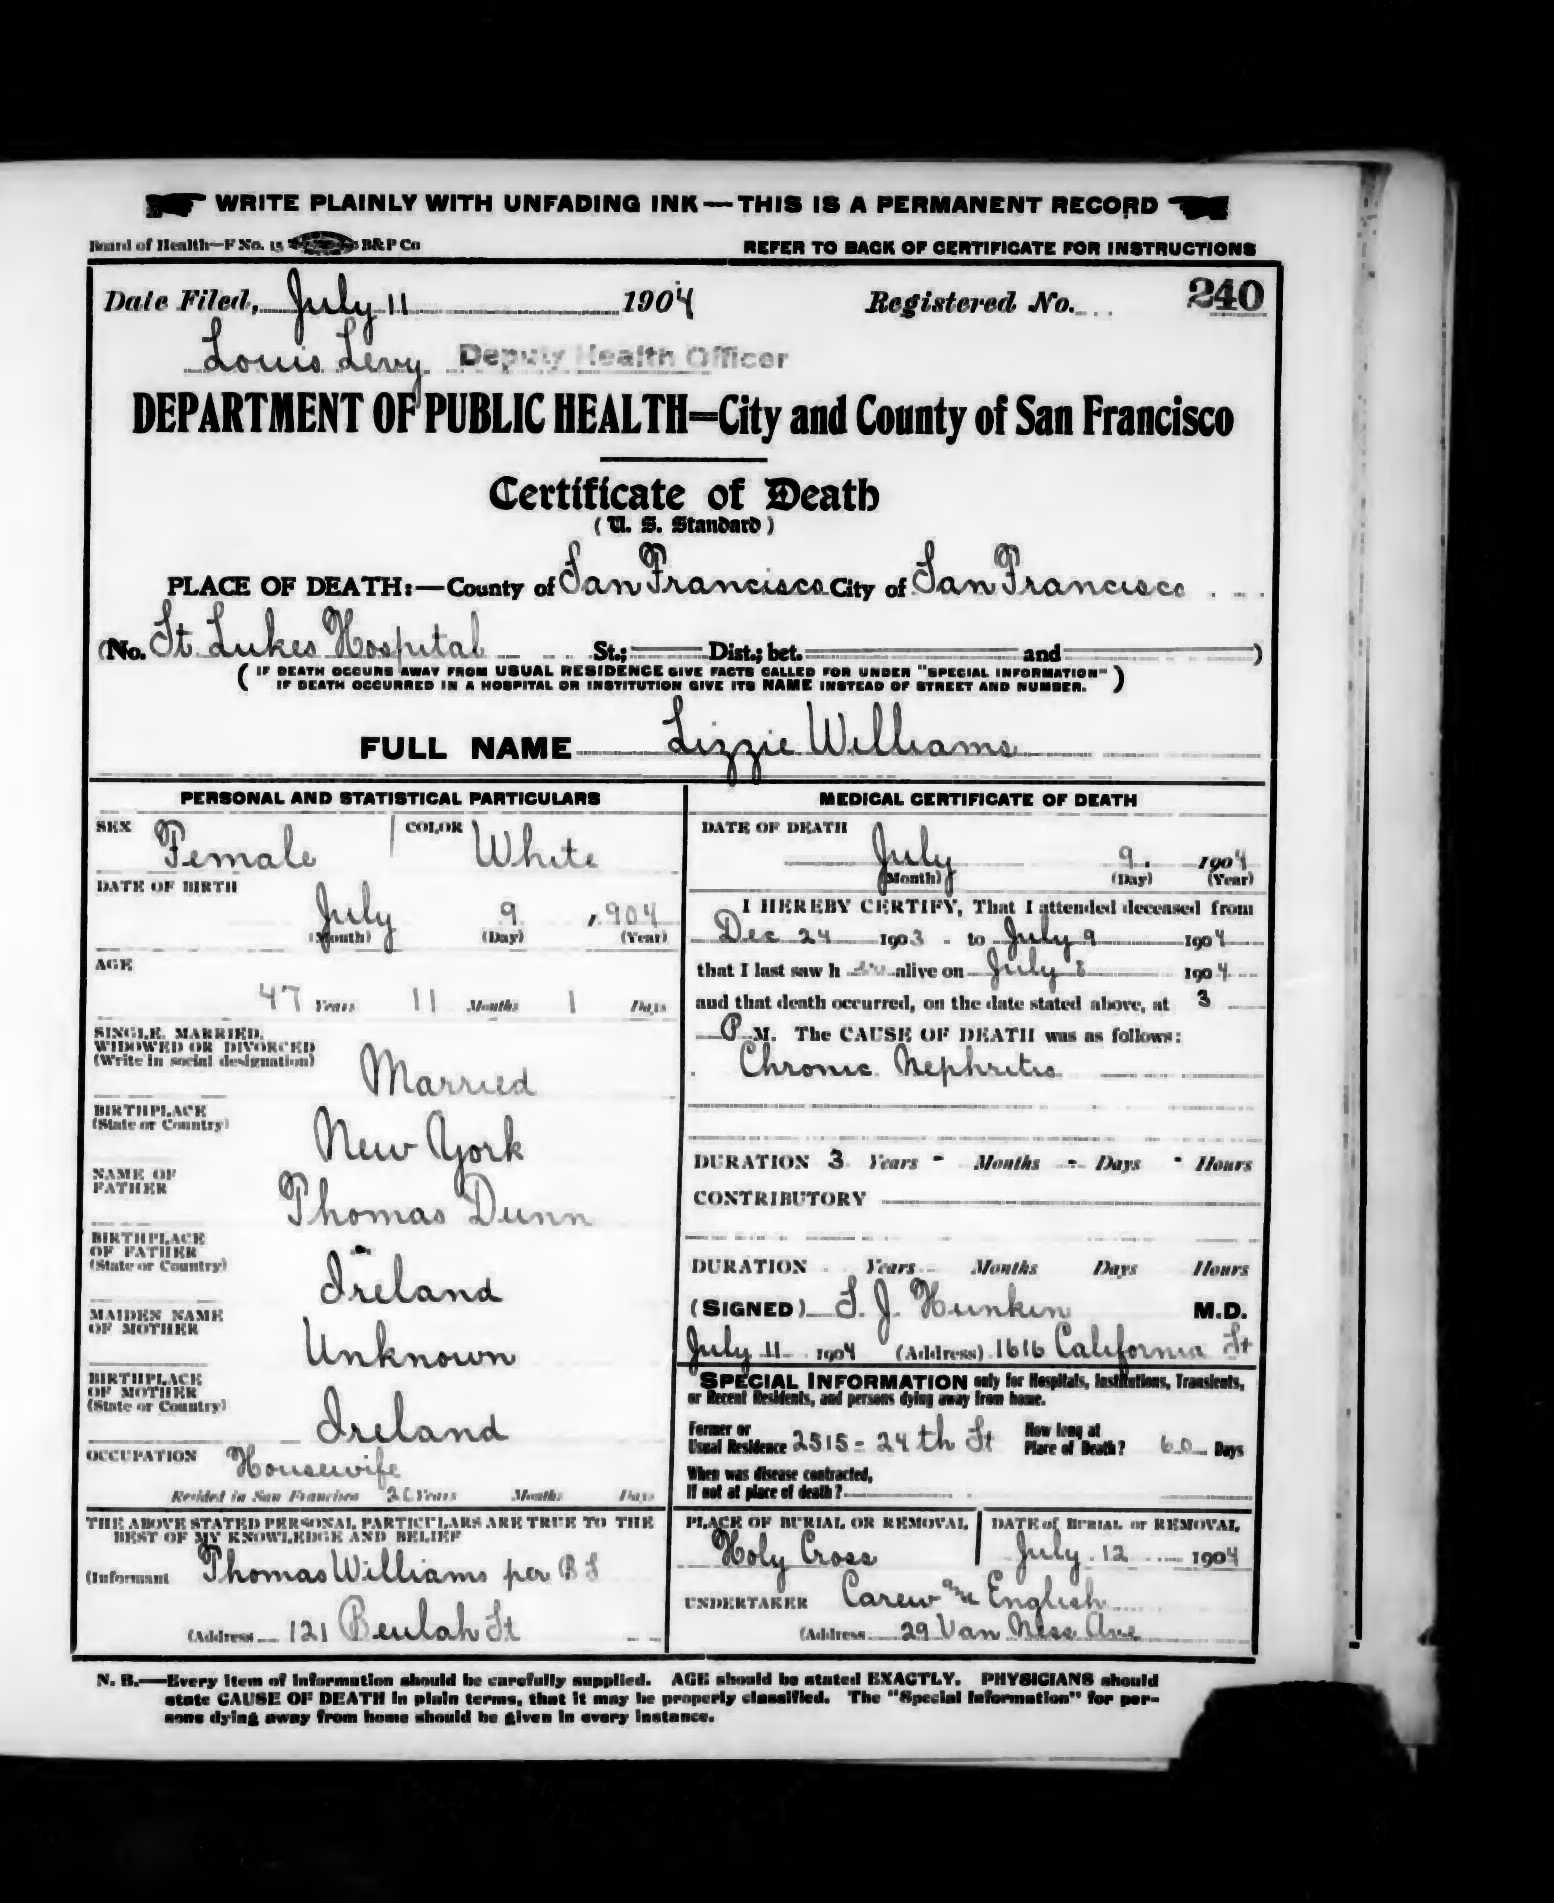 WRITE PLAINLY WITH UNFADING INK—THIS IS A PERMANENT RECORD
Board of Health—F No. 15 B&P Co REFER TO BACK OF CERTIFICATE FOR INSTRUCTIONS
Date Filed, July 11 1904 Registered No. 240
Louis Levy Deputy Health Officer
DEPARTMENT OF PUBLIC HEALTH—City and County of San Francisco
Certificate of Death
(U. S. Standard)
PLACE OF DEATH:—County of San Francisco City of San Francisco
(No. St. Lukes Hospital St.; Dist.; bet. and )
( IF DEATH OCCURS AWAY FROM USUAL RESIDENCE GIVE FACTS CALLED FOR UNDER "SPECIAL INFORMATION"
IF DEATH OCCURRED IN A HOSPITAL OR INSTITUTION GIVE ITS NAME INSTEAD OF STREET AND NUMBER. )
FULL NAME Lizzie Williams
PERSONAL AND STATISTICAL PARTICULARS
SEX Female COLOR White
DATE OF BIRTH
July 9 1904
(Month) (Day) (Year)
AGE
47 Years 11 Months 1 Days
SINGLE, MARRIED,
WIDOWED OR DIVORCED
(Write in social designation) Married
BIRTHPLACE
(State or Country) New York
NAME OF
FATHER Thomas Dunn
BIRTHPLACE
OF FATHER
(State or Country) Ireland
MAIDEN NAME
OF MOTHER Unknown
BIRTHPLACE
OF MOTHER
(State or Country) Ireland
OCCUPATION Housewife
Resided in San Francisco Years Months Days
THE ABOVE STATED PERSONAL PARTICULARS ARE TRUE TO THE
BEST OF MY KNOWLEDGE AND BELIEF
(Informant Thomas Williams per B S
(Address 121 Beulah St
MEDICAL CERTIFICATE OF DEATH
DATE OF DEATH
July 9. 1904
(Month) (Day) (Year)
I HEREBY CERTIFY, That I attended deceased from
Dec 24 1903 to July 9 1904
that I last saw h er alive on July 8 1904
and that death occurred, on the date stated above, at 3
P M. The CAUSE OF DEATH was as follows:
Chronic Nephritis
DURATION 3 Years - Months - Days - Hours
CONTRIBUTORY
DURATION Years Months Days Hours
(SIGNED) S. J. Hunkin M.D.
July 11 1904 (Address) 1616 California St
SPECIAL INFORMATION only for Hospitals, Institutions, Transients,
or Recent Residents, and persons dying away from home.
Former or
Usual Residence 2515 - 24th St How long at
Place of Death? 60 Days
When was disease contracted,
If not at place of death?
PLACE OF BURIAL OR REMOVAL DATE of BURIAL or REMOVAL
Holy Cross July 12 1904
UNDERTAKER Carew and English
(Address 29 Van Ness Ave
N. B.—Every item of information should be carefully supplied. AGE should be stated EXACTLY. PHYSICIANS should
state CAUSE OF DEATH in plain terms, that it may be properly classified. The "Special Information" for per-
sons dying away from home should be given in every instance.